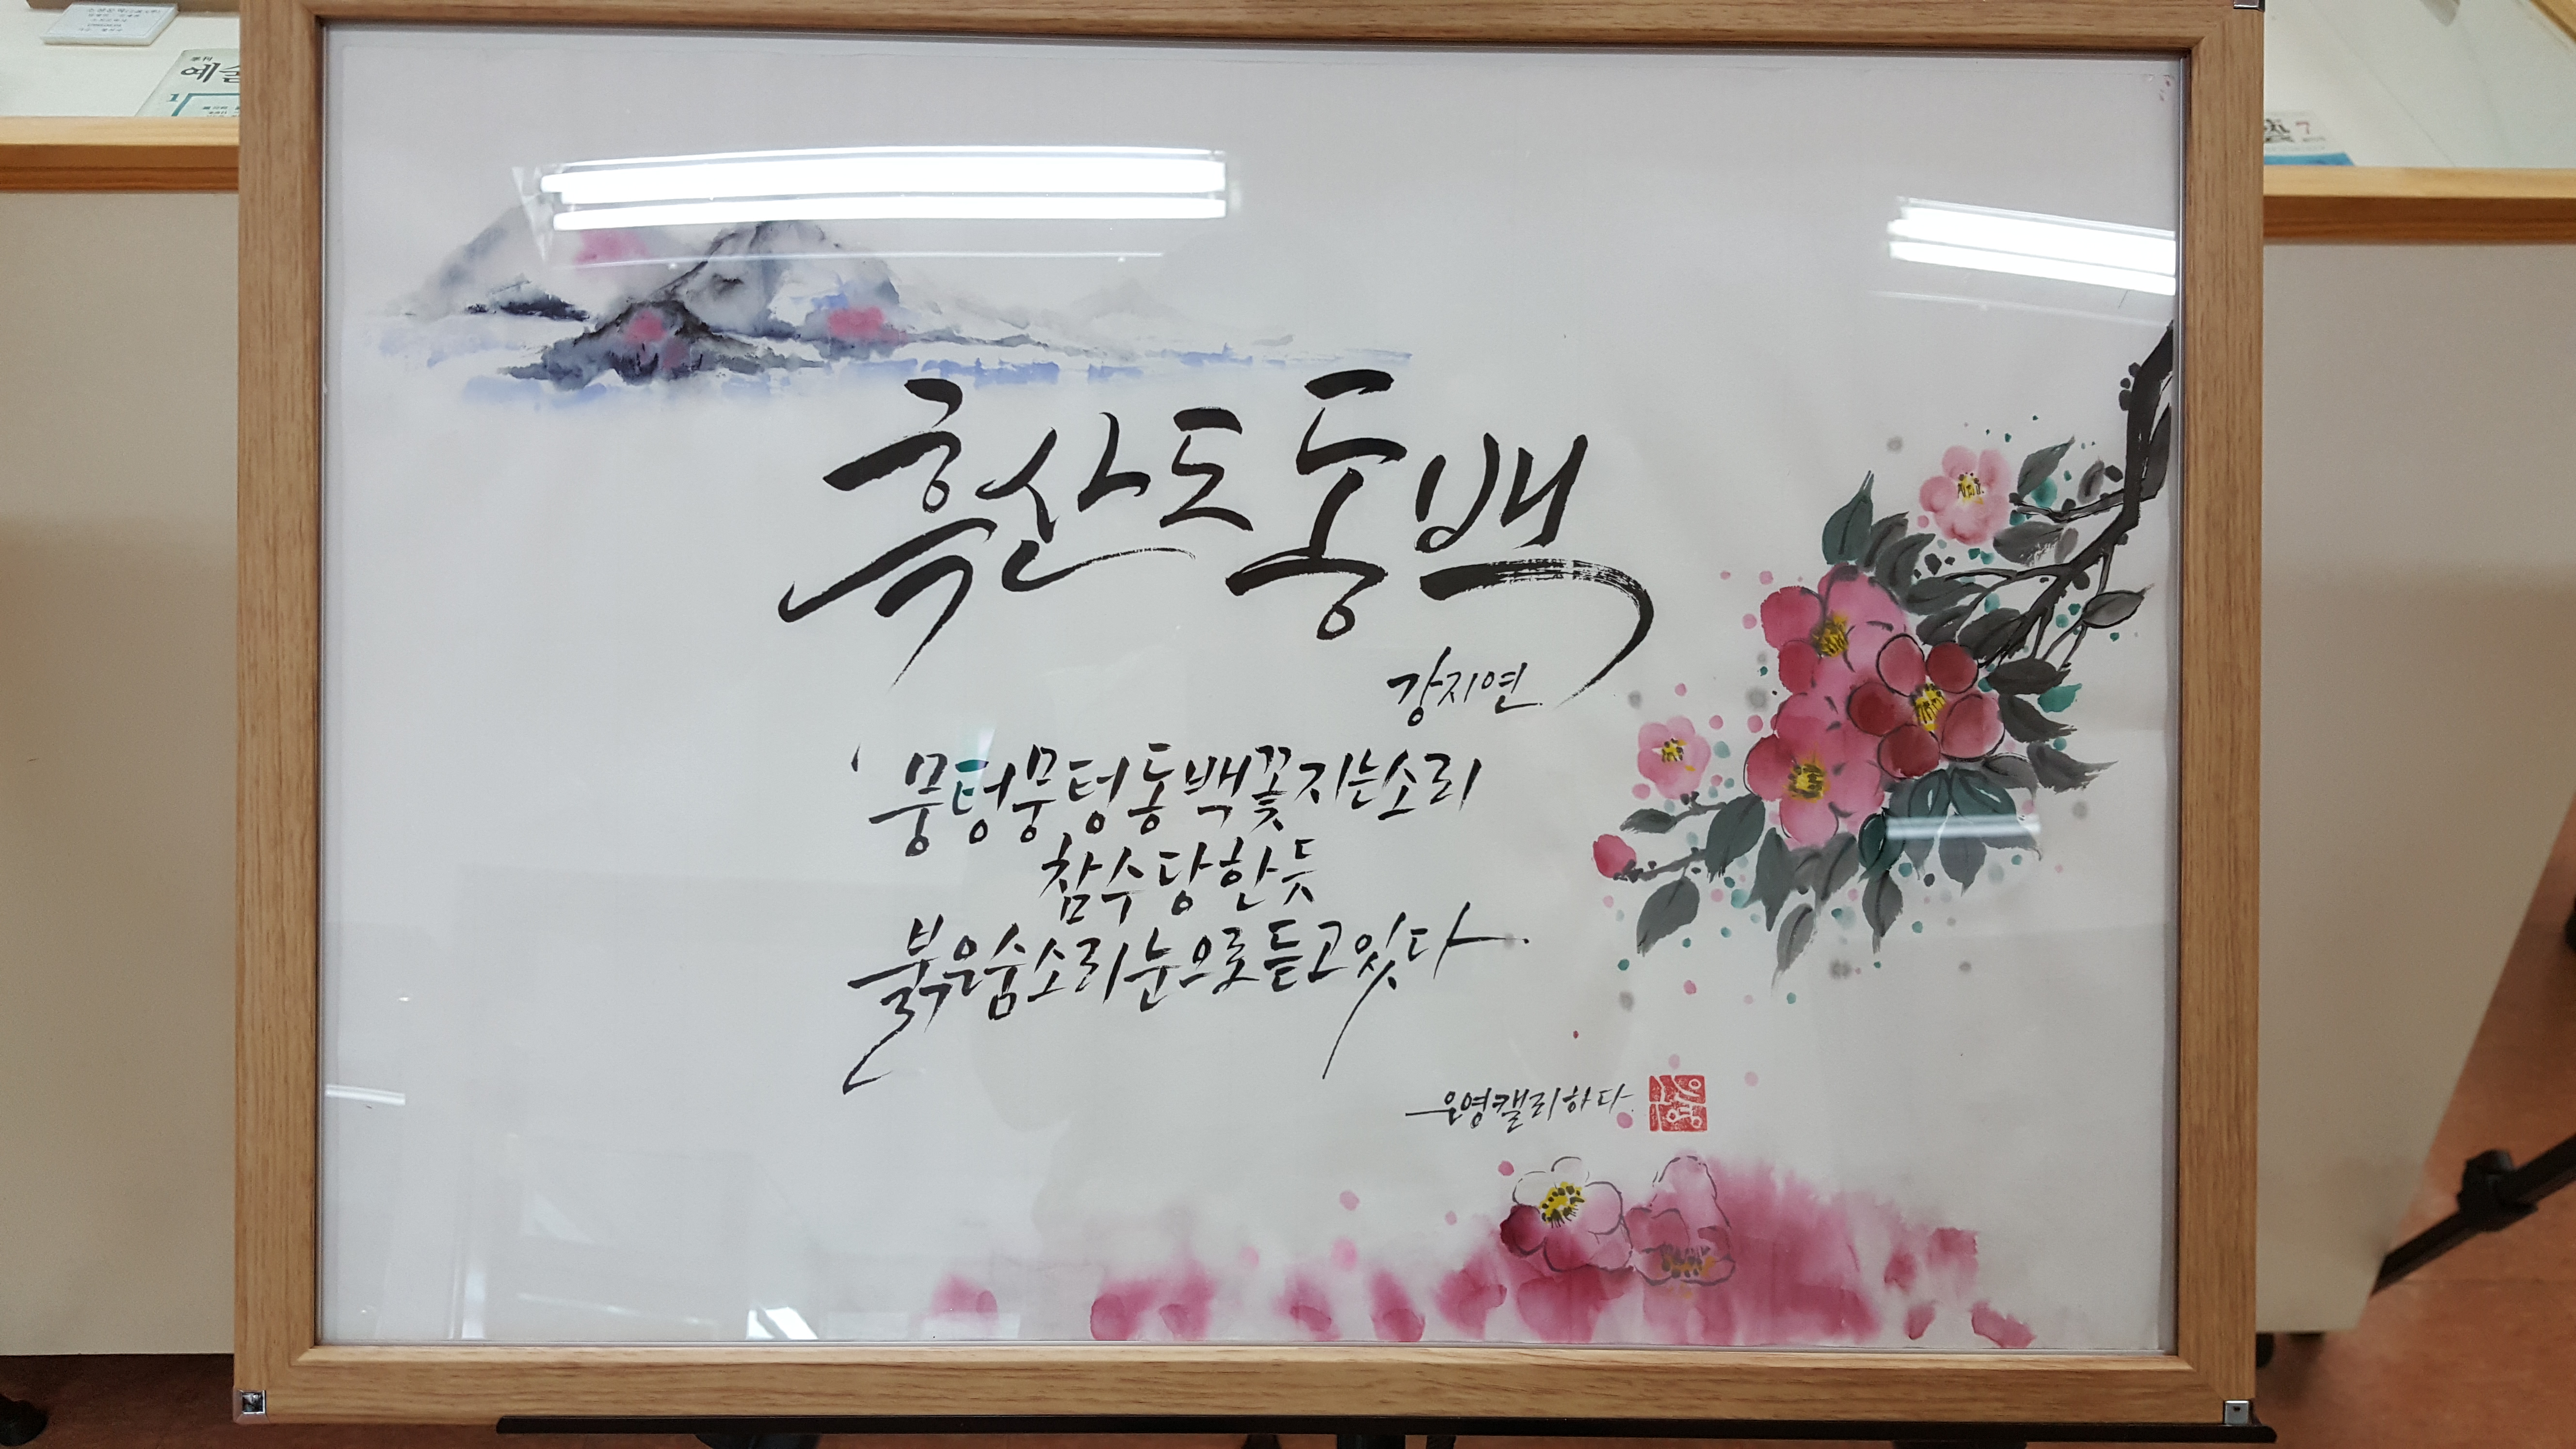 예술
7
흑산도 동백
강지연
뭉텅뭉텅 동백꽃 지는 소리
참수 당한 듯
붉은 숨소리 눈으로 듣고 있다
은영캘리하다.
은영